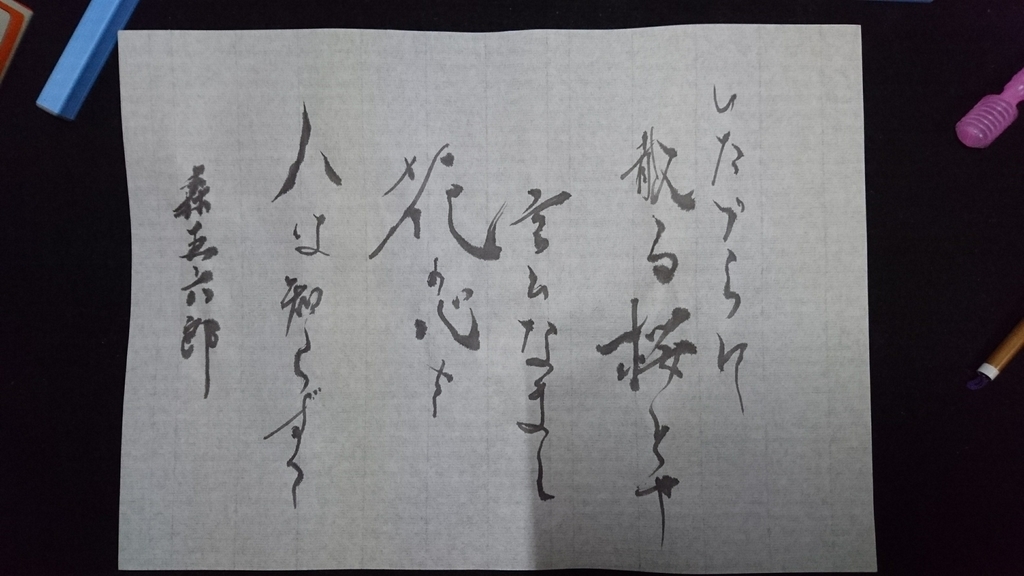 いたづらに
散る桜とや
言はなまし
花の心を
人は知らずて
森五六郎